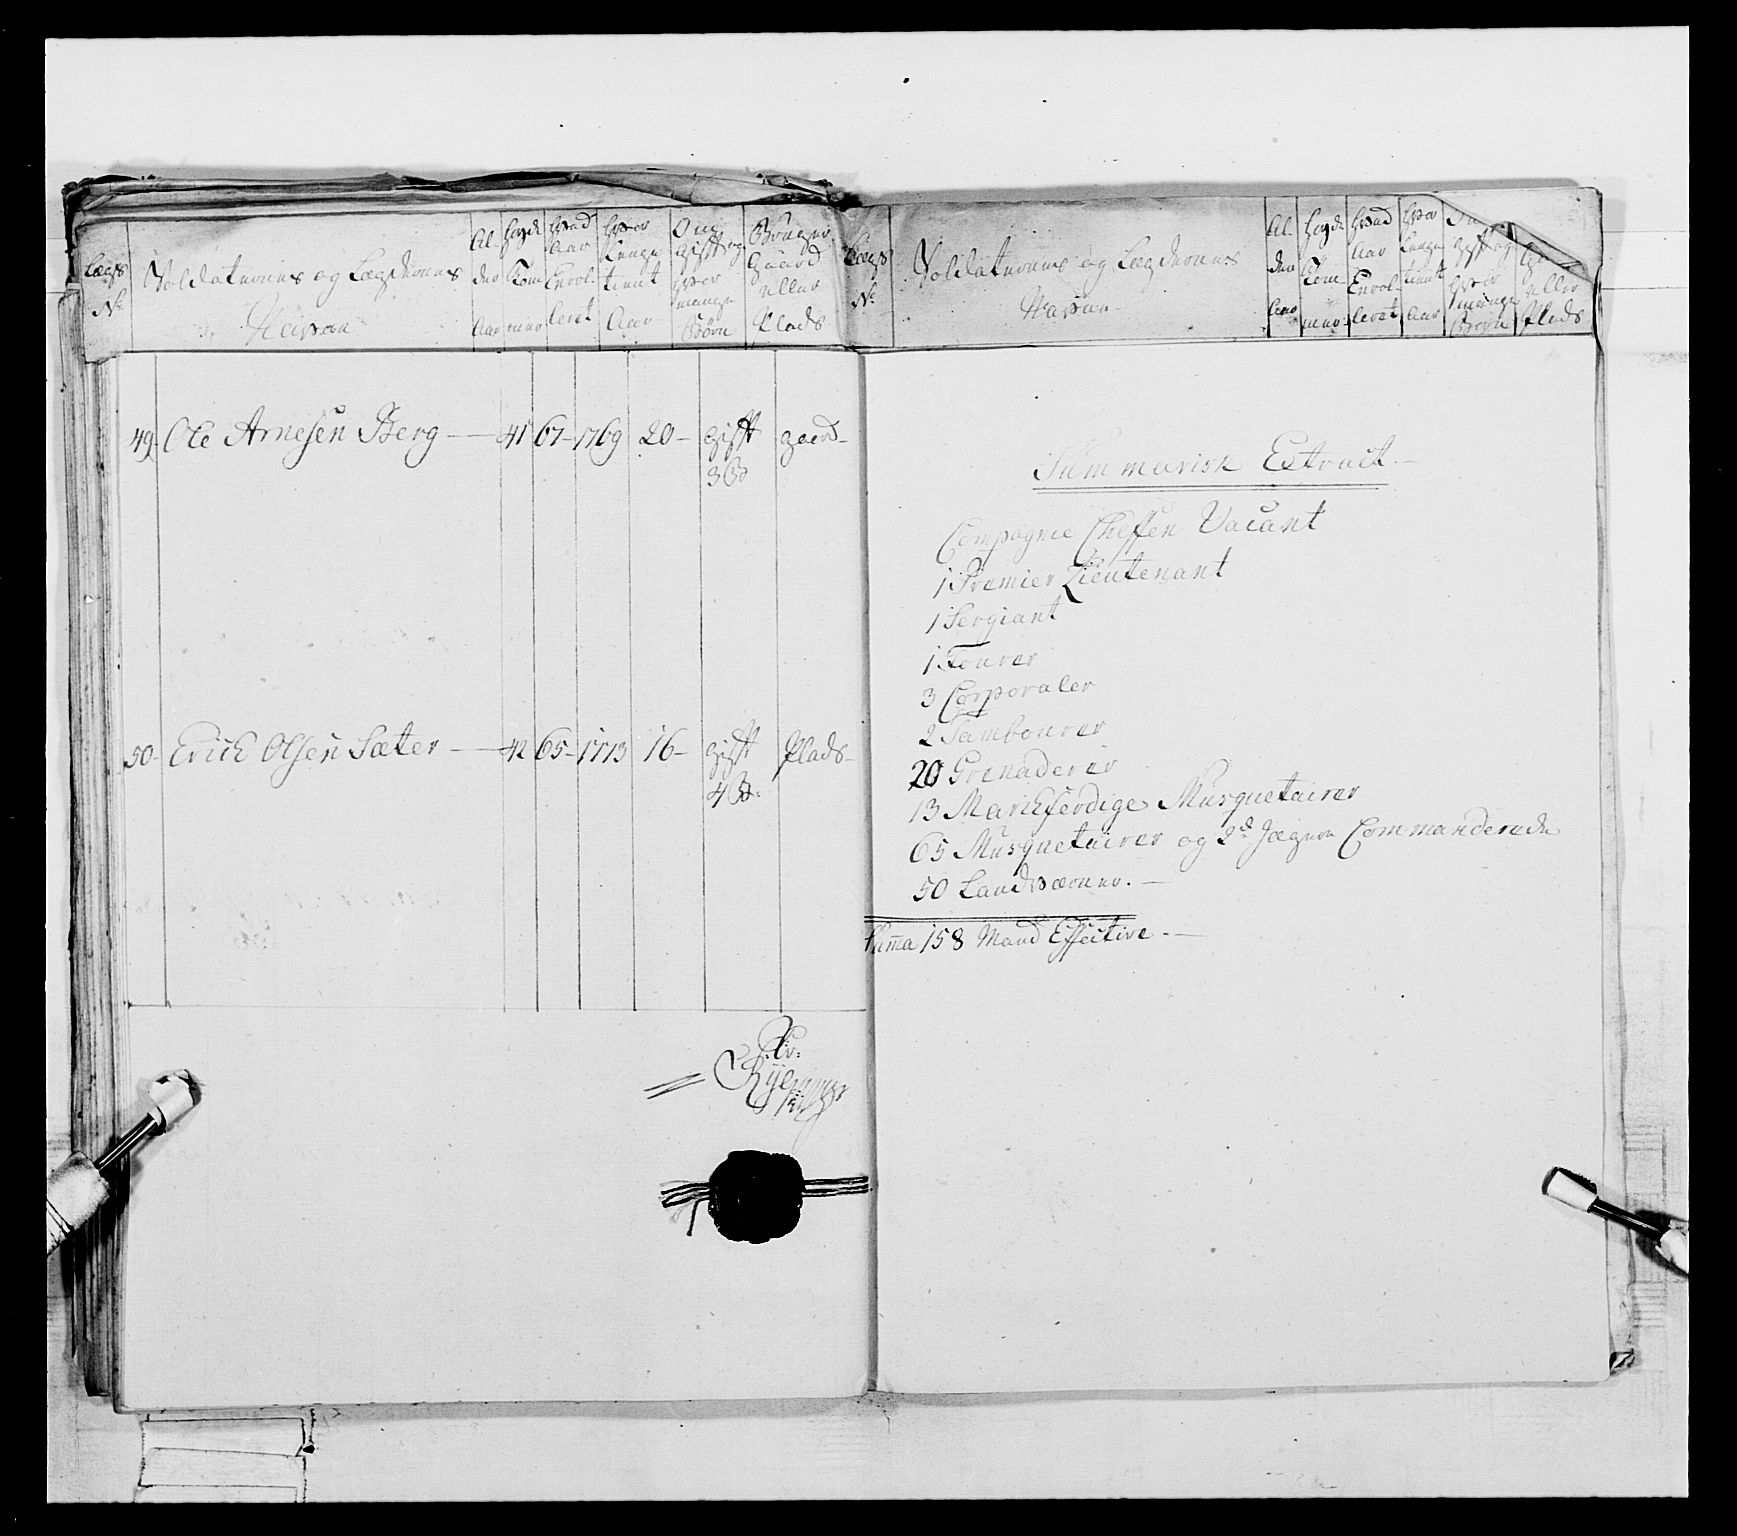 Lægs No
Soldaternes og Lægdernes Nafne
Alder Aar
Høyde Tommer
Hvad Aar Enrolleret
Hvor Længe tient Aar
Om gift og Hvor mange Børn
Bruger Gaard eller Plads
49 Ole Arnesen Berg — 41 67 1769 20 gift 3 B: gaard
50 Erich Olsen Sæter — 42 65 1773 16 gift 4 B: Plads
Lægs No
Soldaternes og Lægdernes Nafne
Alder Aar
Høyde Tommer
Hvad Aar Enrolleret
Hvor Længe tient Aar
gift og Hvor mange Børn
eller Plads
Summarisk Extract
Compagnie Cheffen Vacant
1 Premier Lieutenant
1 Sergiant
1 Fourer
3 Corporaler
2 Tambourer
20 Grenaderer
13 Marchferdige Musquetairer
65 Musquetairer og 2de Jægere Commanderede
50 Landværner.
Summa 158 Mand Effective.